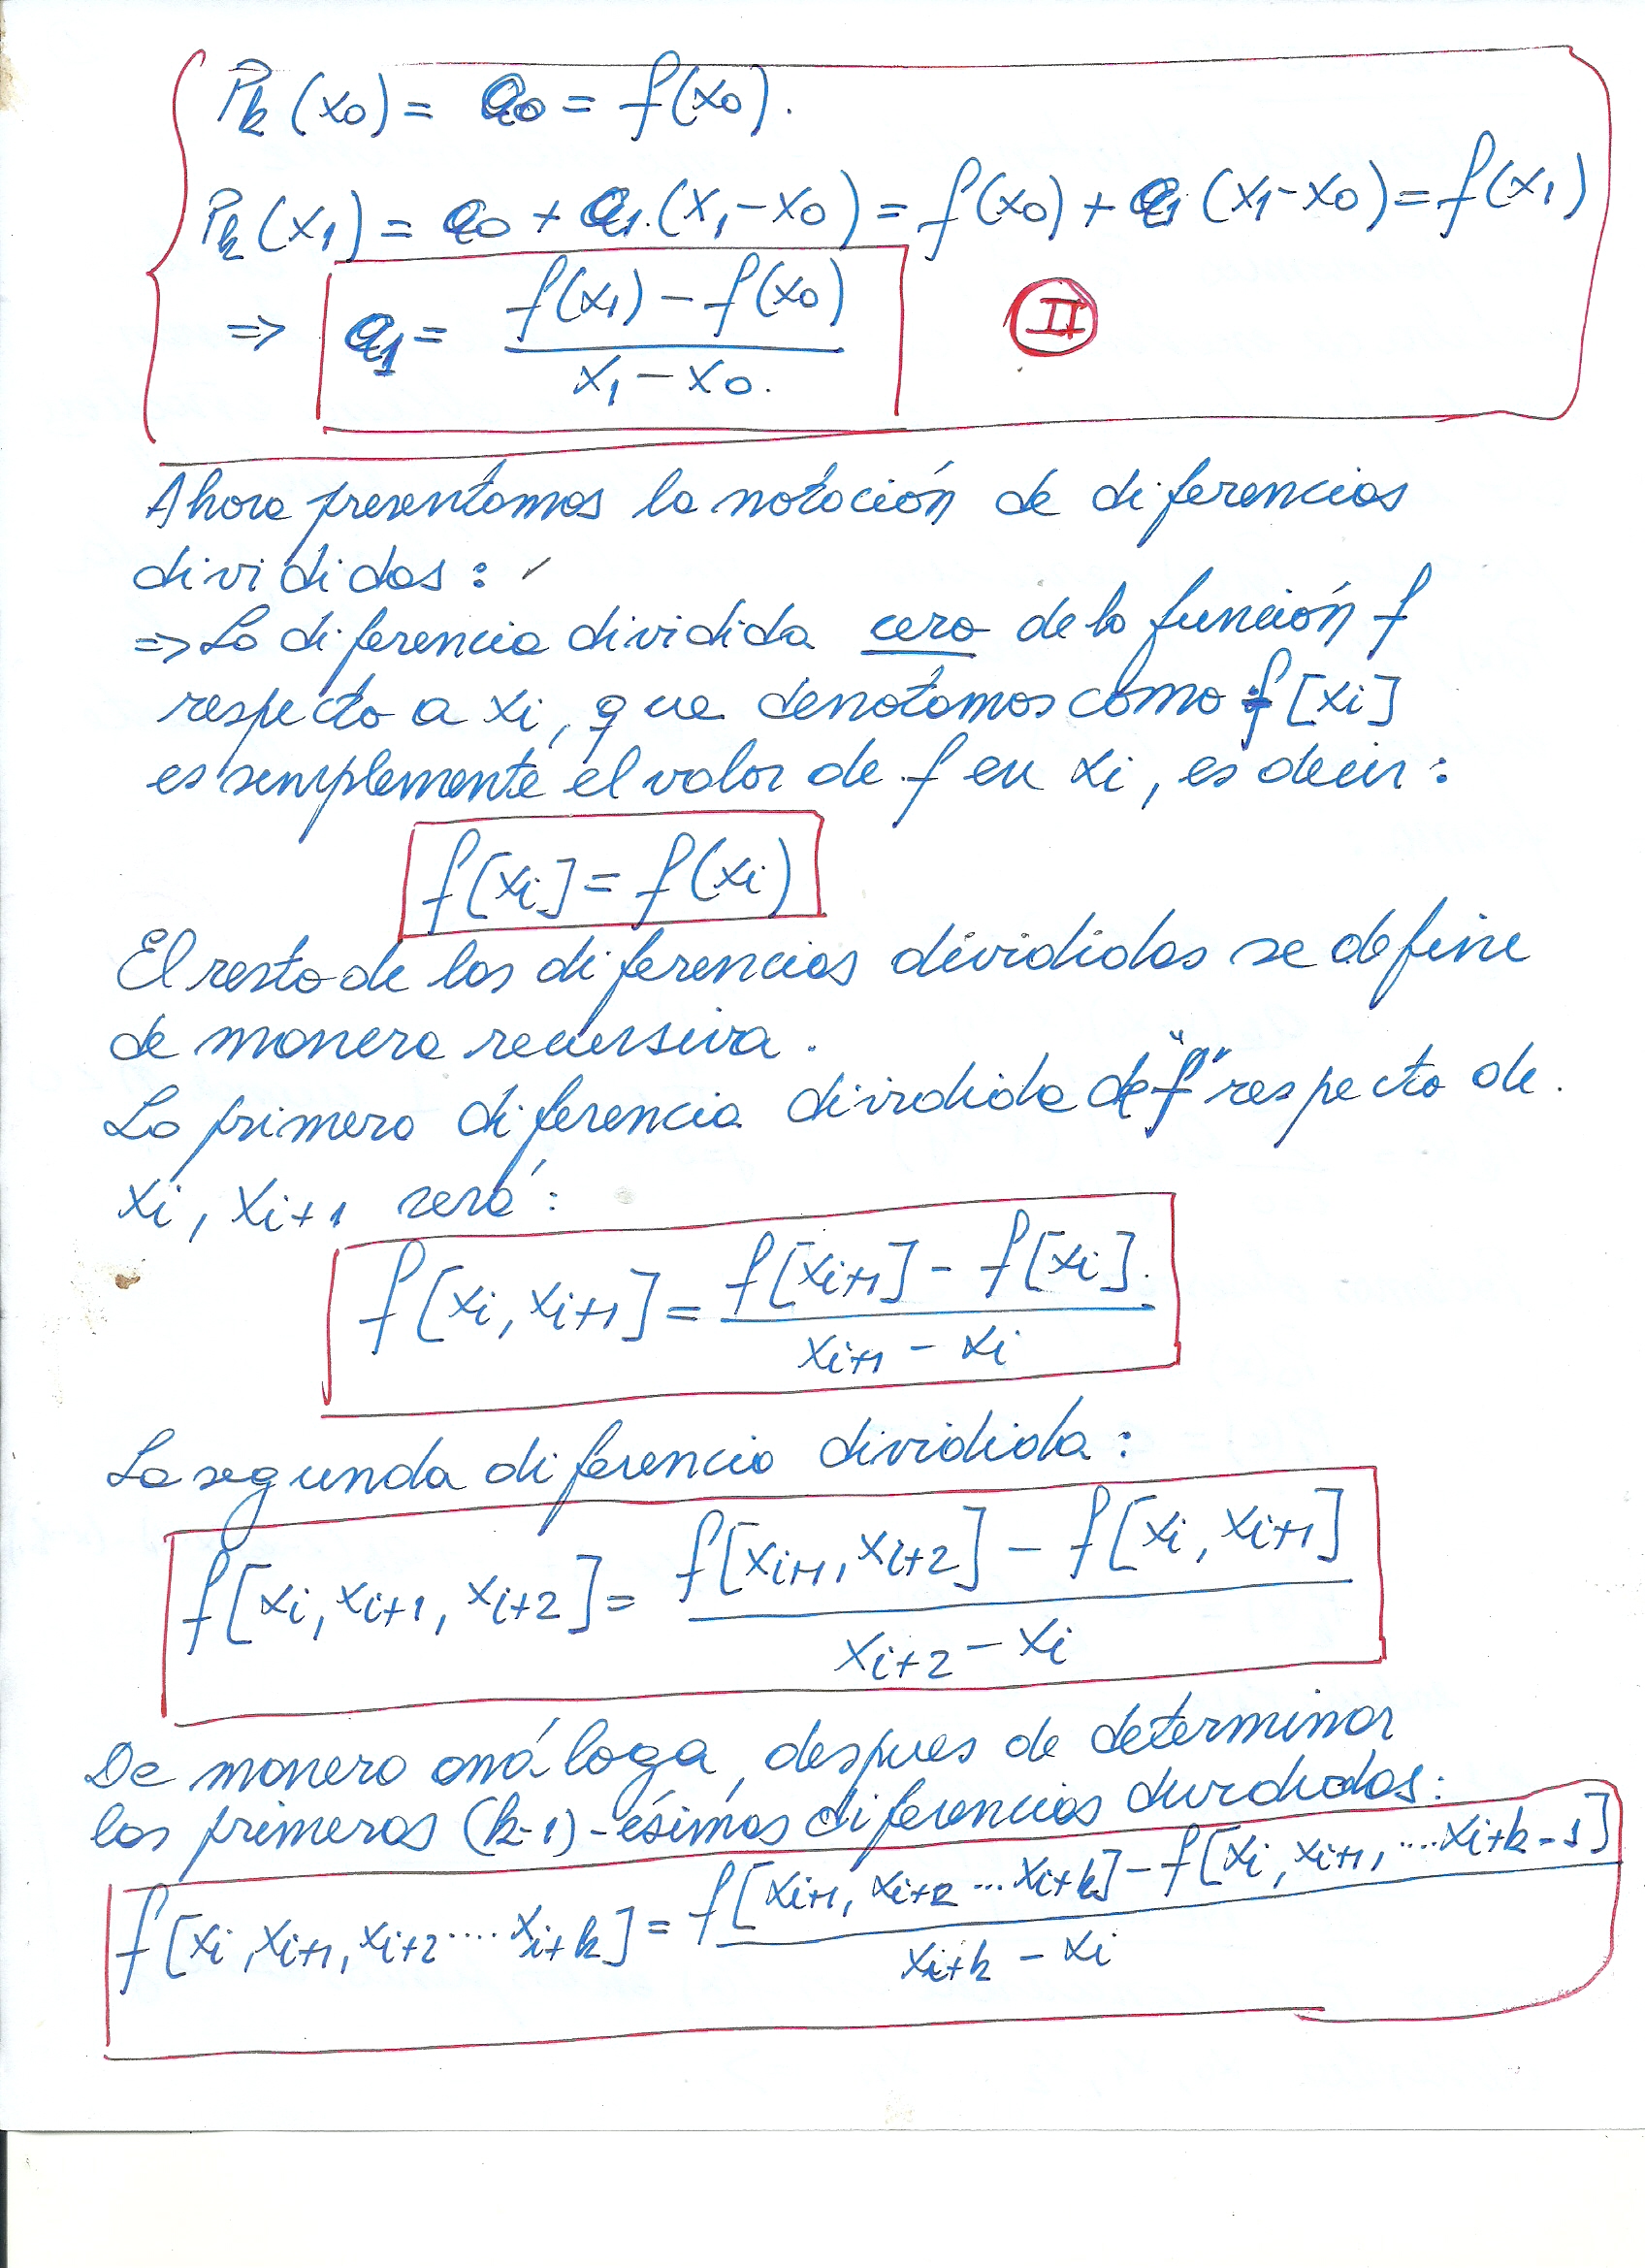 P_k(x0) = a0 = f(x0).
P_k(x1) = a0 + a1.(x1-x0) = f(x0) + a1(x1-x0) = f(x1)
⇒ a1 = (f(x1) - f(x0)) / (x1 - x0). II
Ahora presentamos la notación de diferencias
divididas:
⇒ La diferencia dividida cero de la función f
respecto a xi, que denotamos como f[xi]
es simplemente el valor de f en xi, es decir:
f[xi] = f(xi)
El resto de las diferencias divididas se define
de manera recursiva.
La primera diferencia dividida de "f" respecto de.
xi, xi+1 será:
f[xi, xi+1] = (f[xi+1] - f[xi].) / (xi+1 - xi)
La segunda diferencia dividida:
f[xi, xi+1, xi+2] = (f[xi+1, xi+2] - f[xi, xi+1]) / (xi+2 - xi)
De manera análoga, despues de determinar
las primeras (k-1)-ésimas diferencias divididas:
f[xi, xi+1, xi+2 .... xi+k] = (f[xi+1, xi+2 ... xi+k] - f[xi, xi+1, .... xi+k-1]) / (xi+k - xi)